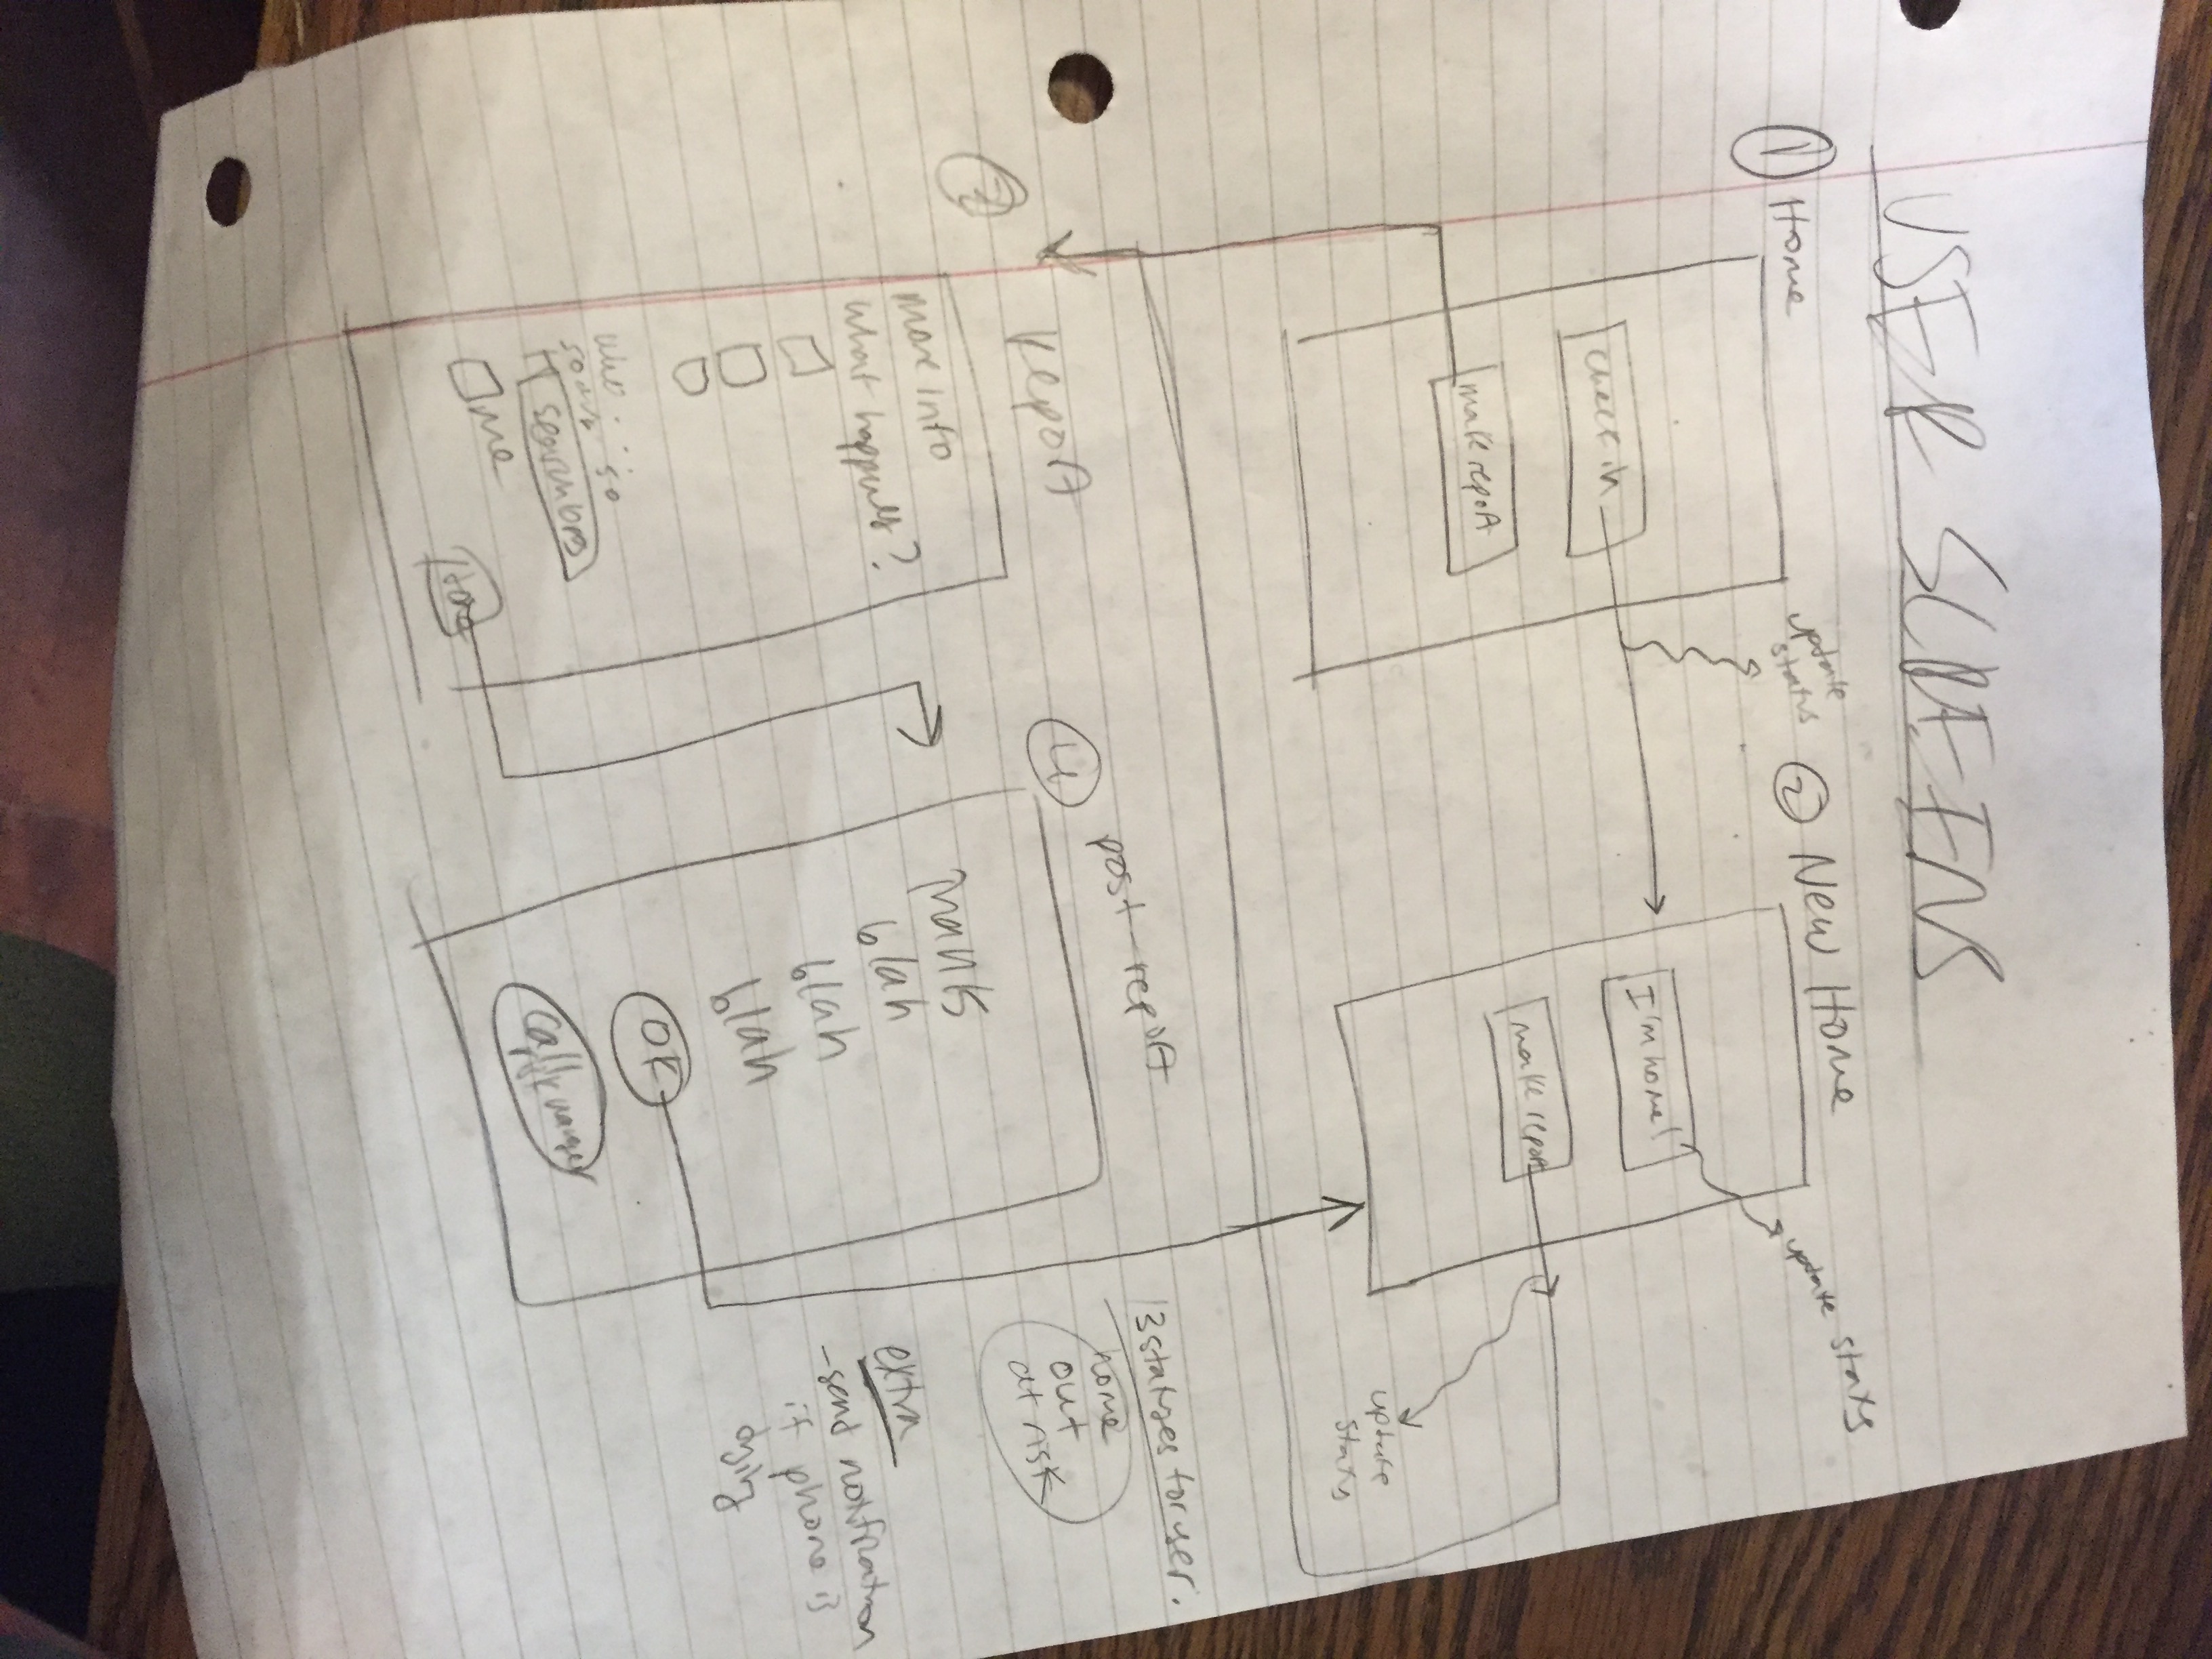 USER SCREENS
① Home
check in
make report
update
status
② New Home
I'm home!
make report
update status
update
status
③
report
more info
what happened?
who
so
me
④ post-report
Thanks
blah
blah
blah
OK
Call manager
3 statuses for user:
home
out
at risk
extra
- send notification
if phone is
dying